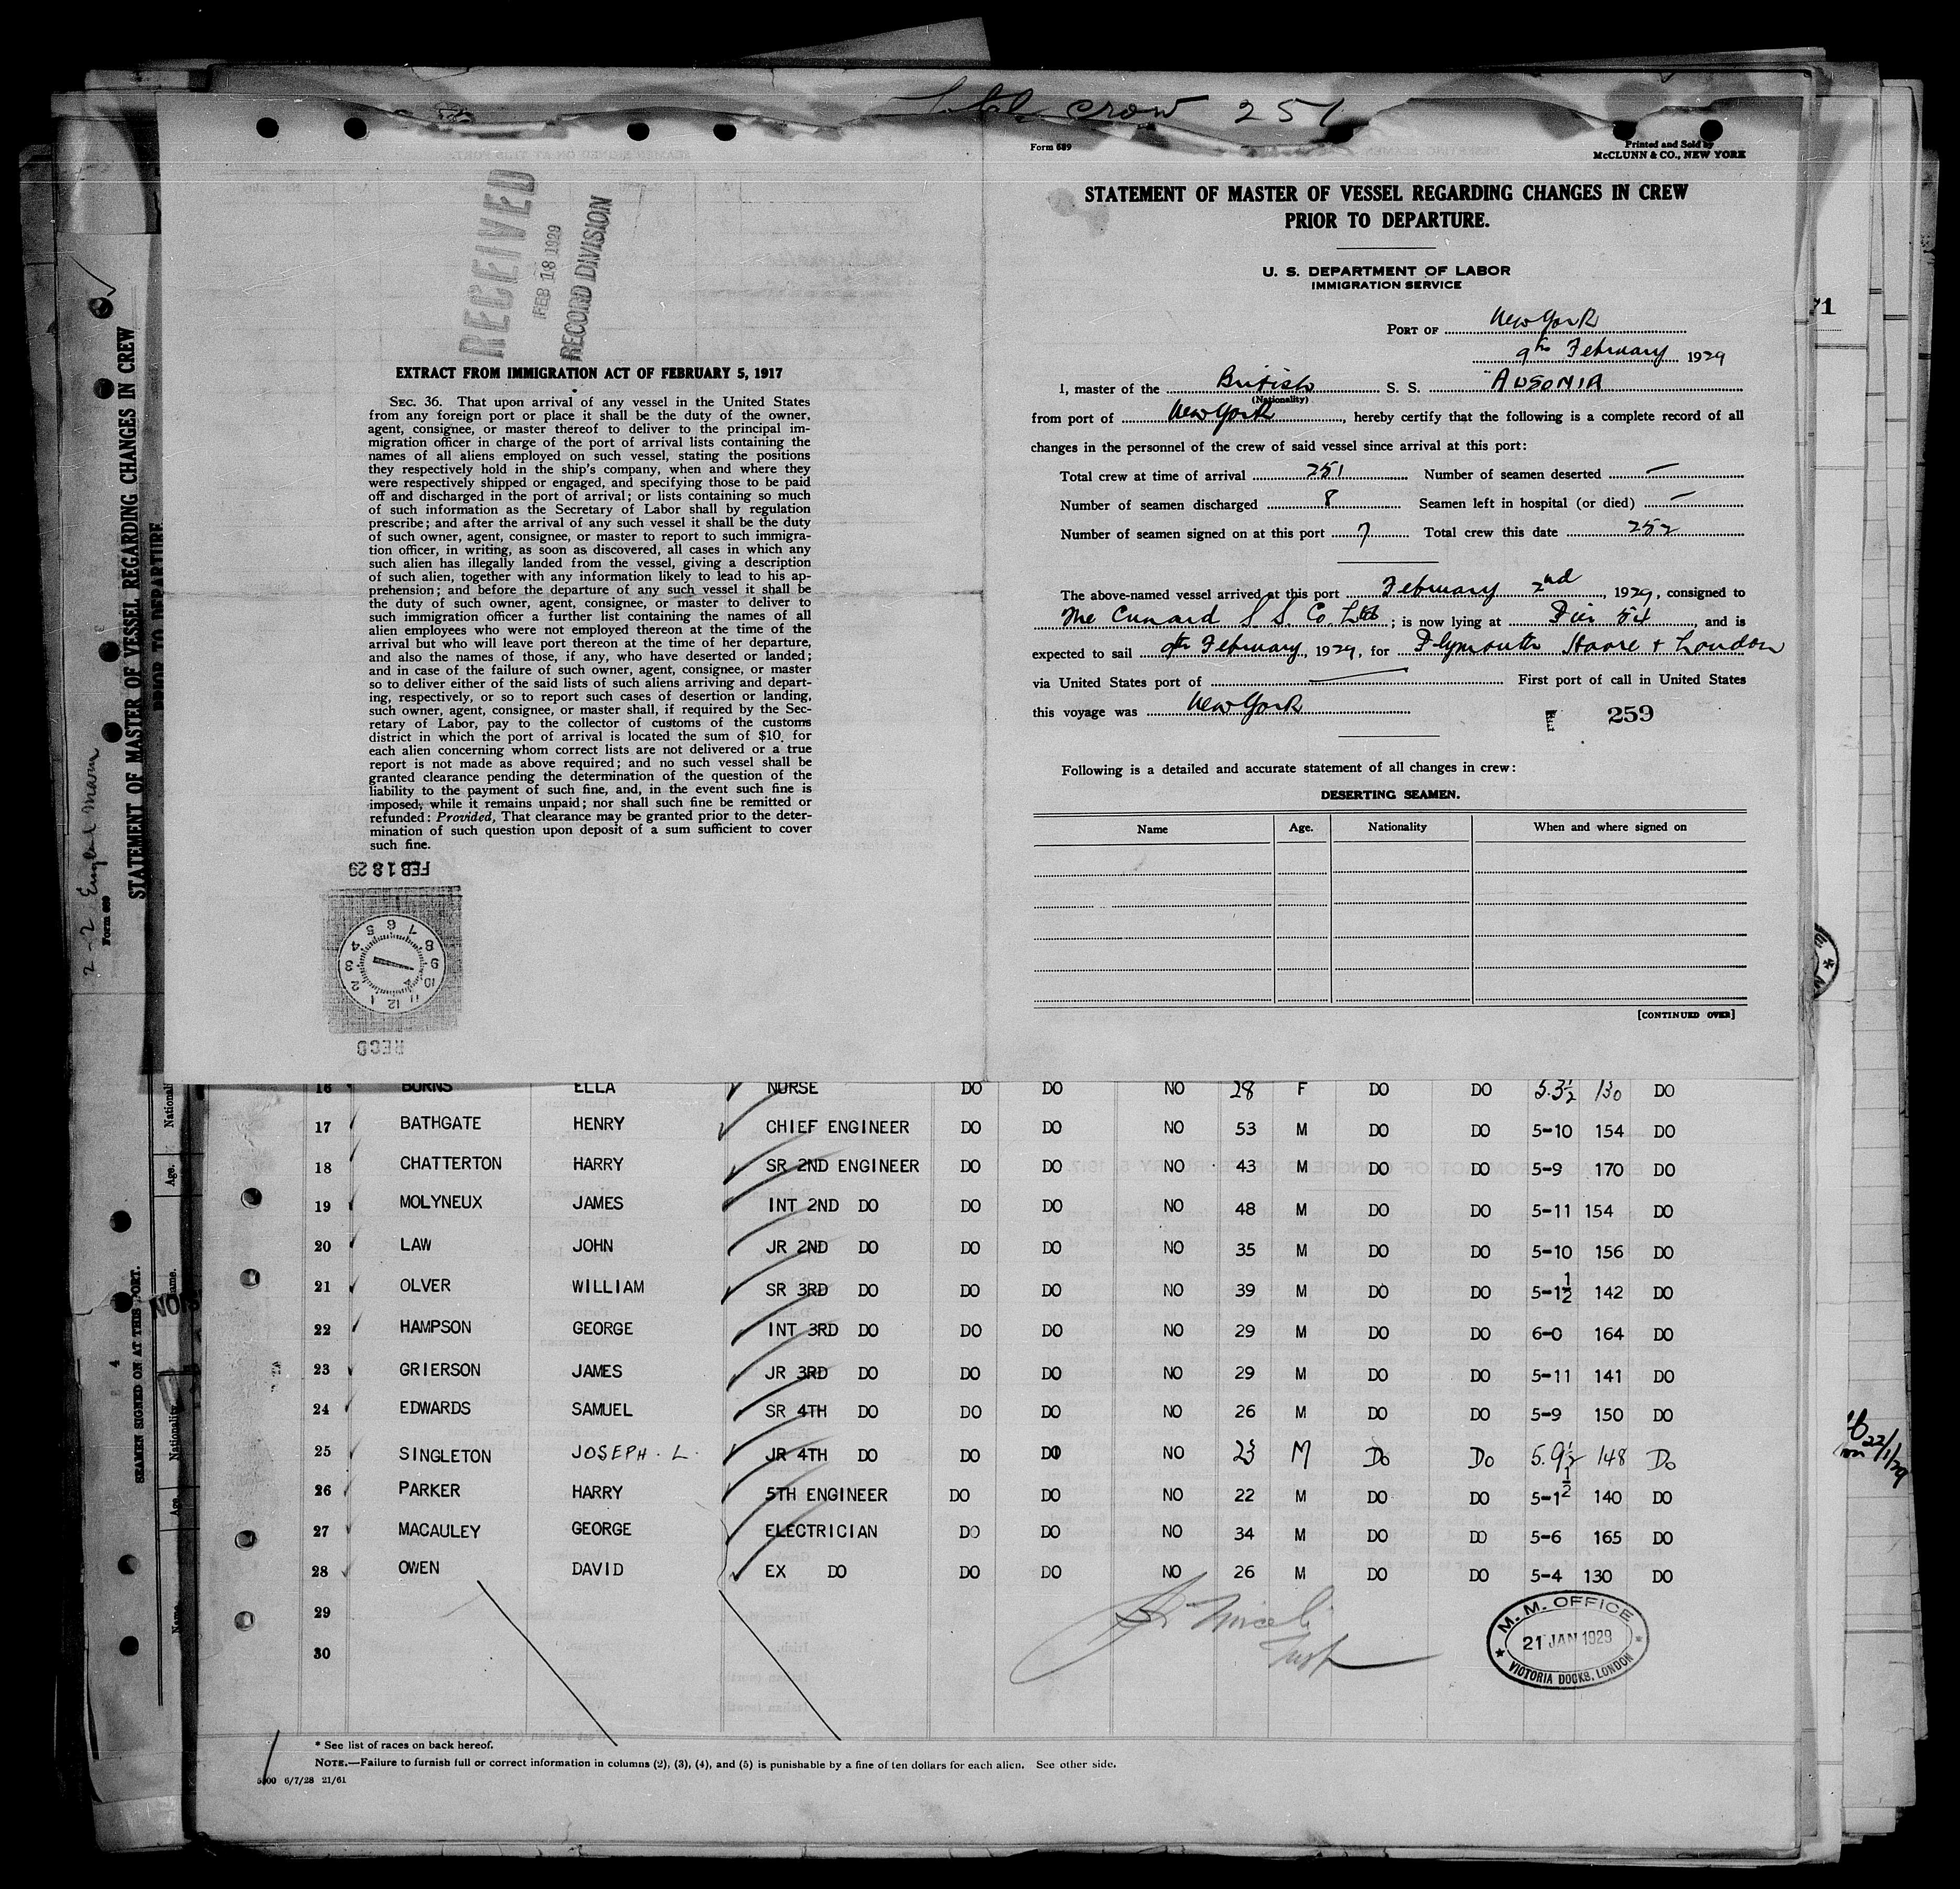 Total crew 251
Form 689
Printed and Sold by
McCLUNN & CO., NEW YORK
RECEIVED
FEB 18 1929
RECORD DIVISION
EXTRACT FROM IMMIGRATION ACT OF FEBRUARY 5, 1917
SEC. 36. That upon arrival of any vessel in the United States
from any foreign port or place it shall be the duty of the owner,
agent, consignee, or master thereof to deliver to the principal im-
migration officer in charge of the port of arrival lists containing the
names of all aliens employed on such vessel, stating the positions
they respectively hold in the ship's company, when and where they
were respectively shipped or engaged, and specifying those to be paid
off and discharged in the port of arrival; or lists containing so much
of such information as the Secretary of Labor shall by regulation
prescribe; and after the arrival of any such vessel it shall be the duty
of such owner, agent, consignee, or master to report to such immigra-
tion officer, in writing, as soon as discovered, all cases in which any
such alien has illegally landed from the vessel, giving a description
of such alien, together with any information likely to lead to his ap-
prehension; and before the departure of any such vessel it shall be
the duty of such owner, agent, consignee, or master to deliver to
such immigration officer a further list containing the names of all
alien employees who were not employed thereon at the time of the
arrival but who will leave port thereon at the time of her departure,
and also the names of those, if any, who have deserted or landed;
and in case of the failure of such owner, agent, consignee, or master
so to deliver either of the said lists of such aliens arriving and depart-
ing, respectively, or so to report such cases of desertion or landing,
such owner, agent, consignee, or master shall, if required by the Sec-
retary of Labor, pay to the collector of customs of the customs
district in which the port of arrival is located the sum of $10 for
each alien concerning whom correct lists are not delivered or a true
report is not made as above required; and no such vessel shall be
granted clearance pending the determination of the question of the
liability to the payment of such fine, and, in the event such fine is
imposed, while it remains unpaid; nor shall such fine be remitted or
refunded: Provided, That clearance may be granted prior to the deter-
mination of such question upon deposit of a sum sufficient to cover
such fine.
FEB 18 29
RECD
STATEMENT OF MASTER OF VESSEL REGARDING CHANGES IN CREW
PRIOR TO DEPARTURE.
U. S. DEPARTMENT OF LABOR
IMMIGRATION SERVICE
PORT OF New York
9th February 1929
I, master of the British S. S. "AUSONIA
(Nationality)
from port of New York, hereby certify that the following is a complete record of all
changes in the personnel of the crew of said vessel since arrival at this port:
Total crew at time of arrival 251 Number of seamen deserted —
Number of seamen discharged 8 Seamen left in hospital (or died) —
Number of seamen signed on at this port 7 Total crew this date 252
The above-named vessel arrived at this port February 2nd, 1929, consigned to
The Cunard S S. Co. Ltd; is now lying at Pier 54, and is
expected to sail 9th February, 1929, for Plymouth Havre + London
via United States port of — First port of call in United States
this voyage was New York
259
Following is a detailed and accurate statement of all changes in crew:
DESERTING SEAMEN.
Name Age. Nationality When and where signed on
[CONTINUED OVER]
16 BURNS ELLA NURSE DO DO NO 28 F DO DO 5.3½ 130 DO
17 BATHGATE HENRY CHIEF ENGINEER DO DO NO 53 M DO DO 5-10 154 DO
18 CHATTERTON HARRY SR 2ND ENGINEER DO DO NO 43 M DO DO 5-9 170 DO
19 MOLYNEUX JAMES INT 2ND DO DO DO NO 48 M DO DO 5-11 154 DO
20 LAW JOHN JR 2ND DO DO DO NO 35 M DO DO 5-10 156 DO
21 OLVER WILLIAM SR 3RD DO DO DO NO 39 M DO DO 5-1½ 142 DO
22 HAMPSON GEORGE INT 3RD DO DO DO NO 29 M DO DO 6-0 164 DO
23 GRIERSON JAMES JR 3RD DO DO DO NO 29 M DO DO 5-11 141 DO
24 EDWARDS SAMUEL SR 4TH DO DO DO NO 26 M DO DO 5-9 150 DO
25 SINGLETON JOSEPH. L. JR 4TH DO DO DO NO 23 M Do Do 5.9½ 148 Do
26 PARKER HARRY 5TH ENGINEER DO DO NO 22 M DO DO 5-1½ 140 DO
27 MACAULEY GEORGE ELECTRICIAN DO DO NO 34 M DO DO 5-6 165 DO
28 OWEN DAVID EX DO DO DO NO 26 M DO DO 5-4 130 DO
29
30
M. M. OFFICE
21 JAN 1929
VICTORIA DOCKS, LONDON
* See list of races on back hereof.
NOTE.—Failure to furnish full or correct information in columns (2), (3), (4), and (5) is punishable by a fine of ten dollars for each alien. See other side.
5000 6/7/28 21/61
STATEMENT OF MASTER OF VESSEL REGARDING CHANGES IN CREW
PRIOR TO DEPARTURE
Form 689
SEAMEN SIGNED ON AT THIS PORT.
Name. Age. Nationality
71
22/1/29